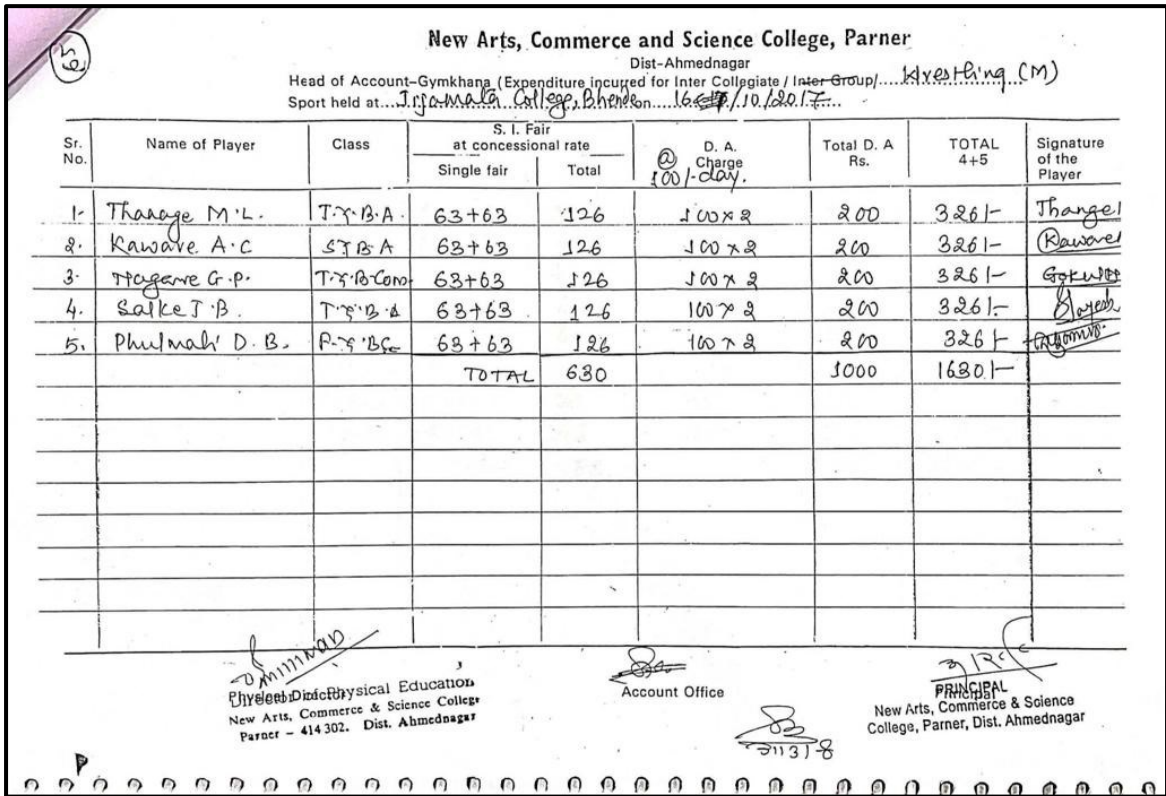 New Arts, Commerce and Science College, Parner
Dist-Ahmednagar
Head of Account-Gymkhana (Expenditure incurred for Inter Collegiate / Inter Group/.... Wrestling (M)
Sport held at... Jijamata College, Bhende on....16 /10/2017...
Sr. No. Name of Player Class S. I. Fair at concessional rate Single fair Total D. A. Charge @ 100/- day. Total D. A Rs. TOTAL 4+5 Signature of the Player
1. Thanage M.L. T.Y.B.A. 63+63 126 100x2 200 326/- Thange
2. Kaware A.C S.Y.B.A 63+63 126 100x2 200 326/- Kaware
3. G.P. T.Y.B.Com 63+63 126 100x2 200 326/-
4. Salke J.B. T.Y.B.A 63+63 126 100x2 200 326/-
5. Phulmali D.B. F.Y.BSc 63+63 126 100x2 200 326/-
TOTAL 630 1000 1630/-
Director of Physical Education
New Arts, Commerce & Science College
Parner - 414 302. Dist. Ahmednagar
Account Office
PRINCIPAL
Principal
New Arts, Commerce & Science
College, Parner, Dist. Ahmednagar